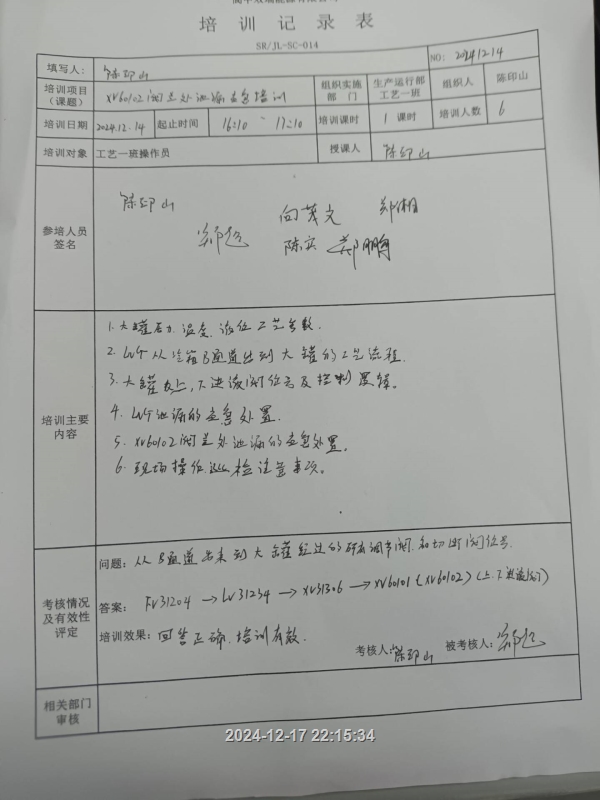 培训记录表
SR/JL-SC-014
NO: 2024.12.14
填写人: 陈印山
培训项目(课题) XV60102阀兰处泄漏应急培训 组织实施部门 生产运行部工艺一班 组织人 陈印山
培训日期 2024.12.14 起止时间 16:10 ~ 17:10 培训课时 1 课时 培训人数 6
培训对象 工艺一班操作员 授课人 陈印山
参培人员签名
陈印山 向茂文 郑湘
陈实 郑鹏
培训主要内容
1. 大罐压力、温度、液位工艺参数.
2. LNG从冷箱B通道出到大罐的工艺流程.
3. 大罐及上,下进液阀位号及控制逻辑。
4. LNG泄漏的应急处置.
5. XV60102阀兰处泄漏的应急处置。
6. 现场操作巡检注意事项。
考核情况及有效性评定
问题: 从B通道出来到大罐经过的所有调节阀、和切断阀位号.
答案: FV31204 → LV31234 → XV31306 → XV60101 (XV60102) (上、下进液阀)
培训效果: 回答正确, 培训有效.
考核人: 陈印山 被考核人:
相关部门审核
2024-12-17 22:15:34